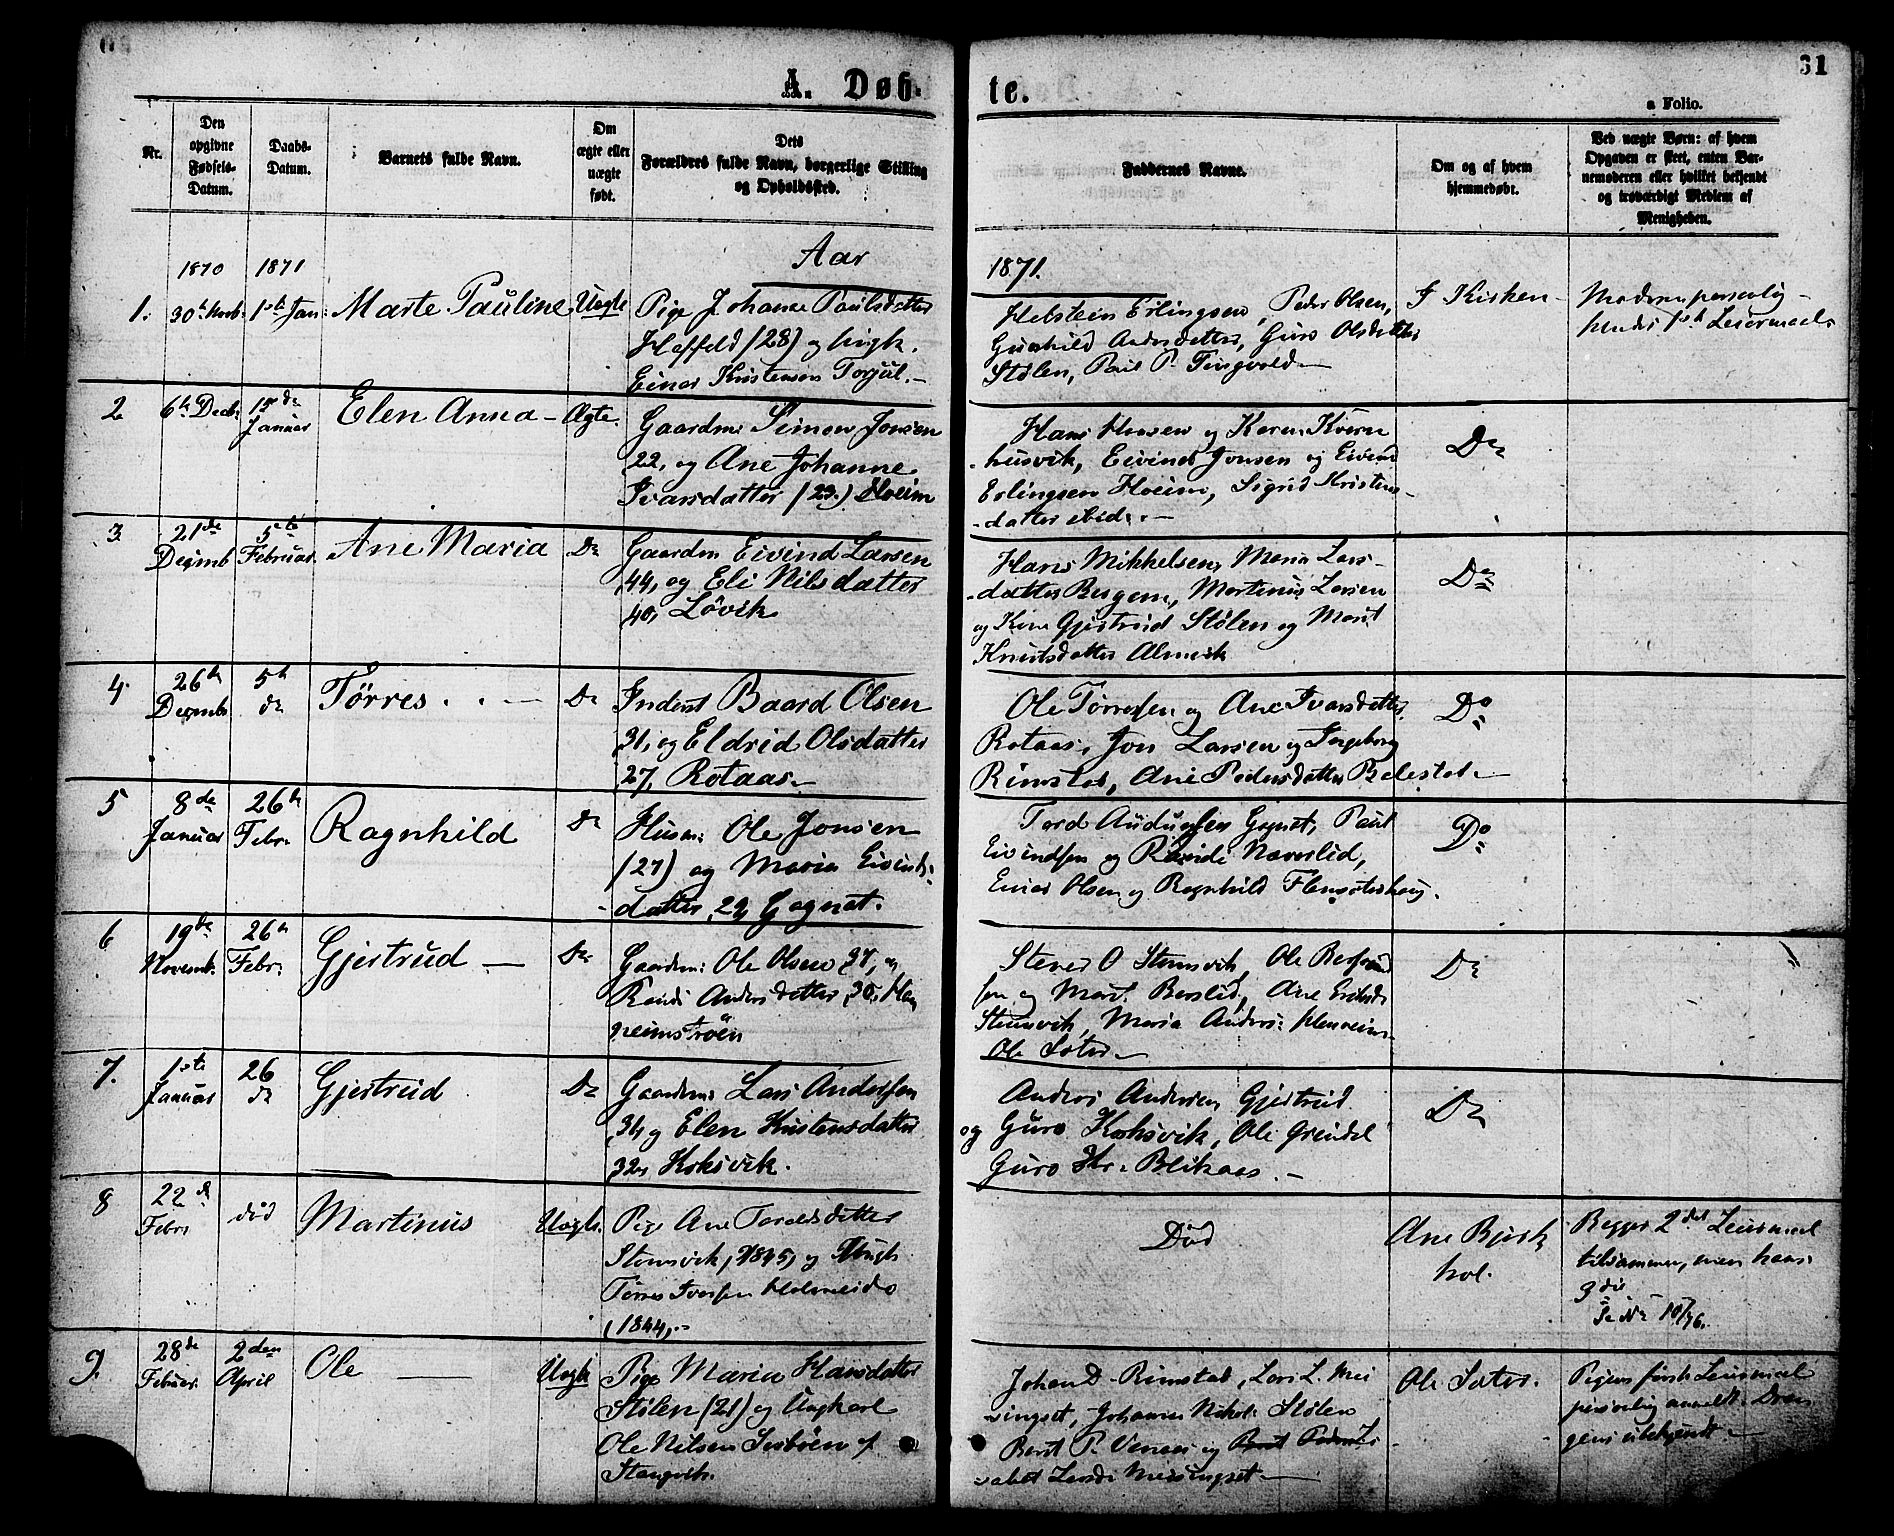 31
A. Døb-
te.
a Folio.
Nr.
Den opgivne Fødsels-Datum.
Daabs-Datum.
Barnets fulde Navn.
Om ægte eller uægte født.
Dets Forældres fulde Navn, borgerlige Stilling og Opholdssted.
Faddernes Navne.
Om og af hvem hjemmedøbt.
Ved uægte Børn: af hvem Opgaven er skeet, enten Barnemoderen eller hvilket bekjendt og troværdigt Medlem af Menigheden.
1870
1871
Aar
1871.
1.
30te Novb.
1ste Jan:
Marte Pauline
Uægte
Pige Johanne Paulsdatter
(28) og Ungk.
Einar Kristensen Torjul.-
Halstein Erlingsen, Peder Olsen,
Gunhild Andersdatter, Guro Olsdatter
Stølen, Paul P. Tingvold-
I Kirken-
Moderen personlig-
hendes 1ste Leiermaal.
2
6te Decb:
15de
Januar
Elen Anna-
Ægte.
Gaardm: Simon Jonsen
22, og Ane Johanne
Ivarsdatter (23) Hoeim
Hans Hansen og Karen Kværn-
husvik, Eivind Jonsen og Eivind
Erlingsen Hoeim, Sigrid Kristens-
-datter ibid.-
Do
3
21de
Decemb
5te
Februar.
Ane Maria
Do
Gaardm Eivind Larsen
44, og Eli Nilsdatter
40, Løvik
Hans Mikkelsen, Maria Lars-
-datter Bergem, Martinus Larsen
og Gjertrud Stølen og Marit
Knutsdatter Almvik
Do
4.
26de
Decemb
5te
do
Tørres . . -
Do
Inderst Baard Olsen
31, og Eldrid Olsdatter
27, Rotaas-
Ole Tørresen og Ane Ivarsdatter
Rotaas, Jon Larsen og Ingeborg
Rimstad, Ane Pedersdatter Belestad-
Do
5
8de
Januar
26de
Febr.
Ragnhild
Do
Husm: Ole Jonsen
(27) og Maria Eivinds-
-datter, 29, Gagnat.
Tord Audunsen Gagnat, Paul
Eivindsen og Randi Næverlid,
Einar Olsen og Ragnhild Flemsæterhaug.
Do
6
19de
Novemb.
26de
Febr.
Gjertrud -
Do
Gaardm: Ole Olsen 37, og
Randi Andersdatter, 30,
Stener O Stensvik, Ole
sen og Marit Berslid, Ane
Stensvik, Maria Anders:
Ole Sæter-
Do
7.
1ste
Januar
26
do
Gjertrud
Do
Gaardm: Lars Andersen
31, og Elen Kristensdatter
32, Koksvik.
Anders Andersen, Gjertrud
og Guro Koksvik, Ole Grendal
Guro Kr. Blikaas.-
Do
8
22de
Febr
død
Martinus
Uægte.
Pige Ane Toraldsdatter
Stensvik, 1845, og Ungk
Tørres Ivarsen Holmeide
, 1844,.-
Død
Ane Bjerk
hol.
Begges 2det Leiermaal
tilsammen, men hans
3die
Se No 10/76.
9.
28de
Februar.
2den
April
Ole -
Uægte
Pige Maria Hansdatter
Stølen (21) og Ungkarl
Ole Nilsen Sæbøen af
Stangvik.
Johan D. Rimstad, Lars L. Mei
singset, Johannes Nikol: Stølen
Berit P. Venaas og Berit Peders Li
sabet Larsd: Meisingset-
Ole Sæter.
Pigens første Leiermaal
personlig anmeldt. Dren
gens ubekjendt.-